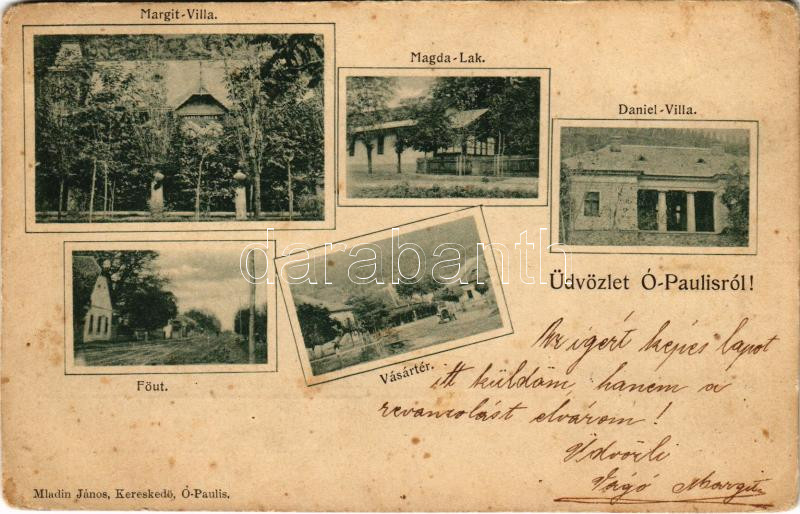 Margit-Villa.
Magda-Lak.
Daniel-Villa.
darabanth
Üdvözlet Ó-Paulisról!
Főut.
Vásártér.
Az igért képes lapot
itt küldöm, hanem a
revancolást elvárom!
Üdvözli
Vágó Margit
Mladin János, Kereskedő, Ó-Paulis.